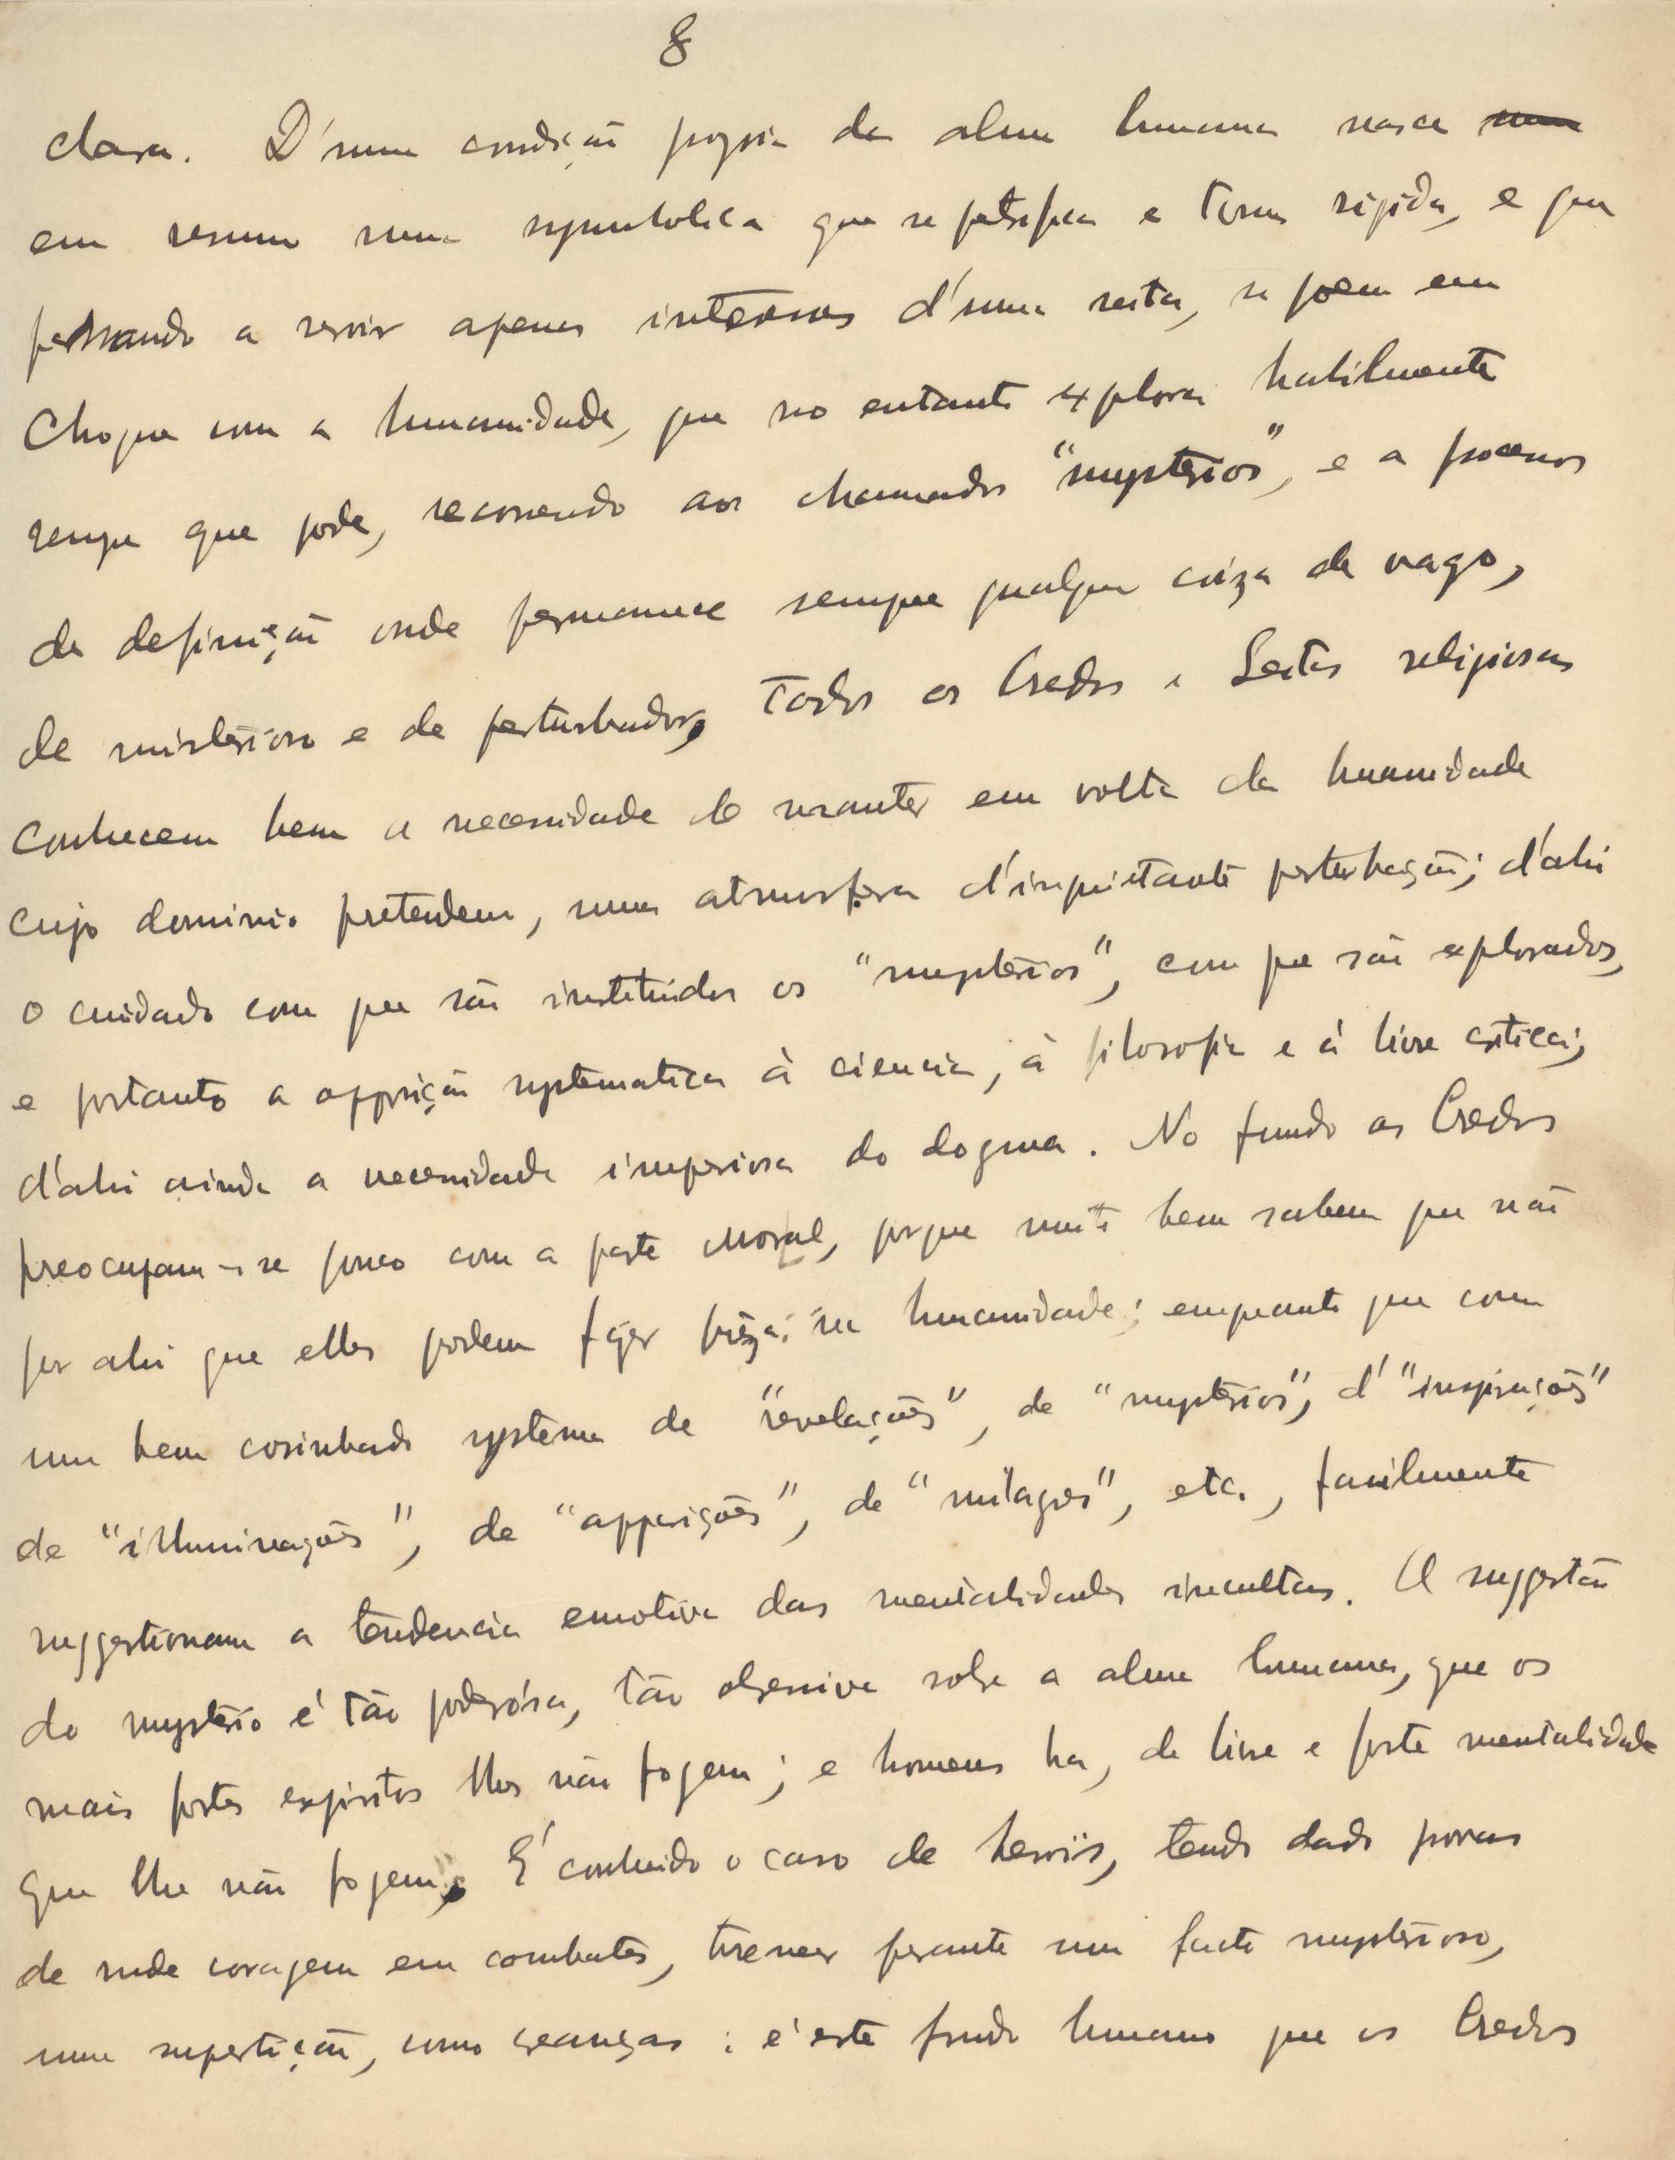 8
clara. D'uma condição propria da alma humana nasce
em resumo uma symbolica que se petrifica e torna rigida, e que
passando a servir apenas interesses d'uma seita, se poem em
choque com a humanidade, que no entanto explora habilmente
sempre que pode, recorrendo aos chamados "mysterios", e a processos
de definição onde permanece sempre qualquer coiza de vago,
de misterioso e de perturbador. Todos os Credos e Seitas religiosas
conhecem bem a necessidade de manter em volta da humanidade
cujo dominio pretendem, uma atmosfera d'inquietante perturbação; d'ahi
o cuidado com que são instituidos os "mysterios", com que são explorados,
e portanto a opposição systematica à ciencia, à filosofia e á livre critica;
d'ahi ainda a necessidade imperiosa do dogma. No fundo os Credos
preocupam-se pouco com a parte moral, porque muito bem sabem que não
por ahi que elles podem fazer preza na humanidade; emquanto que com
um bem cosinhado systema de "revelações", de "mysterios", d'"inspirações"
de "illuminações", de "apparições", de "milagres", etc., facilmente
suggestionam a tendencia emotiva das mentalidades incultas. A suggestão
do mysterio é tão poderósa, tão obsessiva sobre a alma humana, que os
mais fortes espiritos lhes não fogem; e homens ha, de livre e forte mentalidade
que lhe não fogem. É conhecido o caso de heroiis, tendo dado provas
de rude coragem em combates, tremer perante um facto mysterioso,
uma superstição, como creanças: é este fundo humano que os Credos